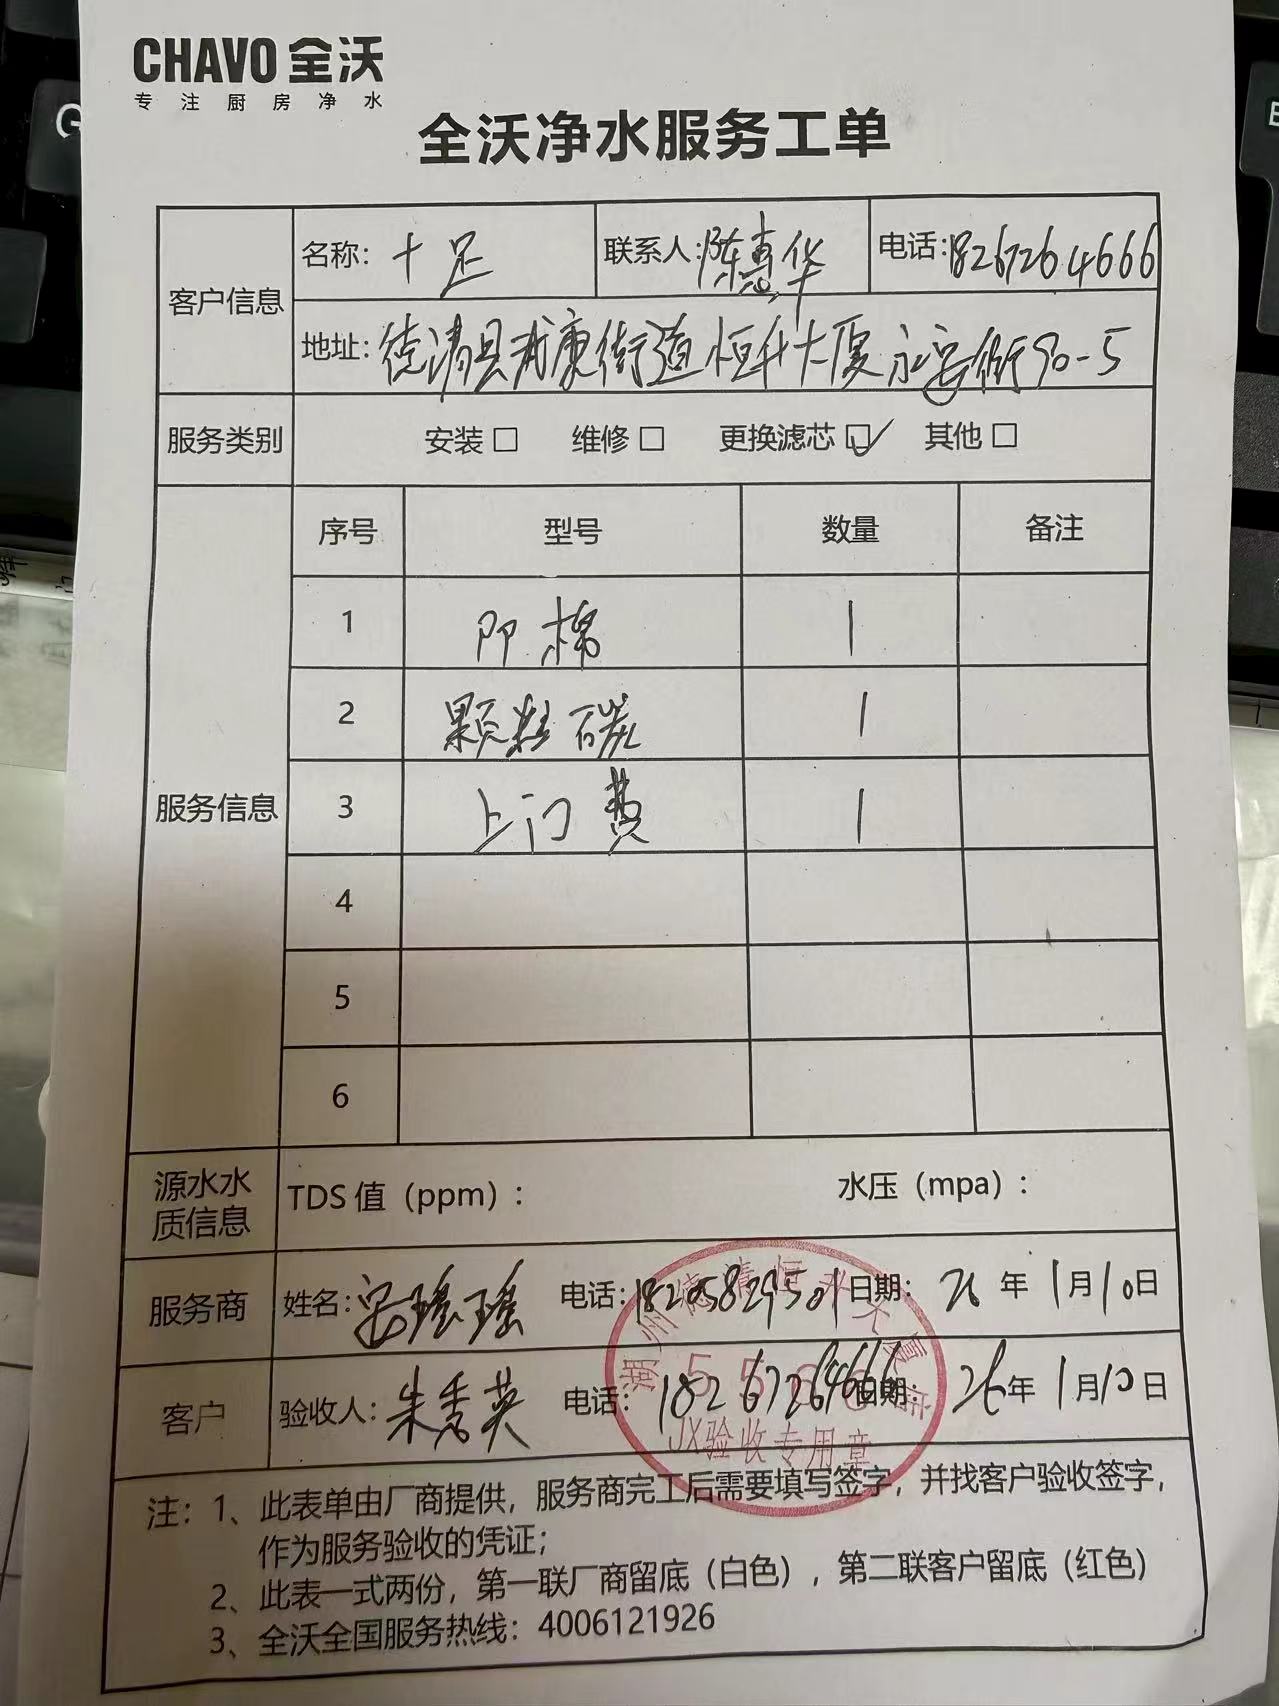 CHAVO 全沃
专注厨房净水
全沃净水服务工单
客户信息 名称：十足 联系人：陈惠华 电话：18267264666
地址：德清县武康街道恒升大厦永安街90-5
服务类别 安装□ 维修□ 更换滤芯☑ 其他□
服务信息 序号 型号 数量 备注
1 PP棉 1
2 颗粒碳 1
3 上门费 1
4
5
6
源水水质信息 TDS值（ppm）： 水压（mpa）：
服务商 姓名：瑶瑶 电话：18205829501 日期：26年1月10日
客户 验收人：朱秀英 电话：18267264666 日期：26年1月10日
湖州德清恒升大厦店
JX验收专用章
注：1、此表单由厂商提供，服务商完工后需要填写签字，并找客户验收签字，
作为服务验收的凭证；
2、此表一式两份，第一联厂商留底（白色），第二联客户留底（红色）
3、全沃全国服务热线：4006121926